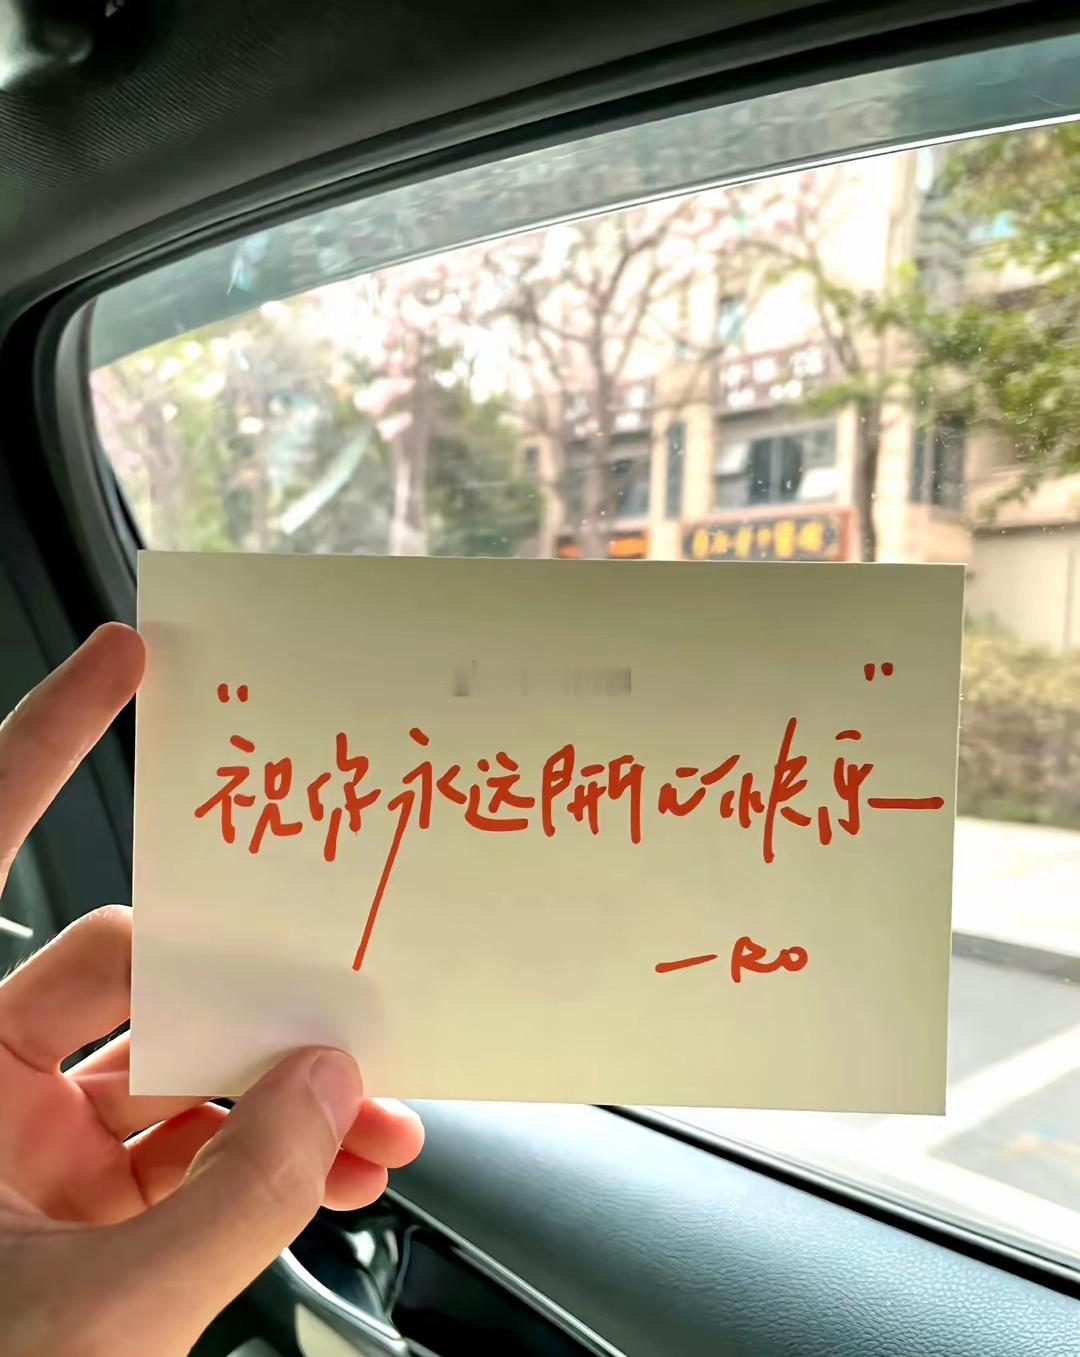 “祝你永远开心快乐”
—Ro